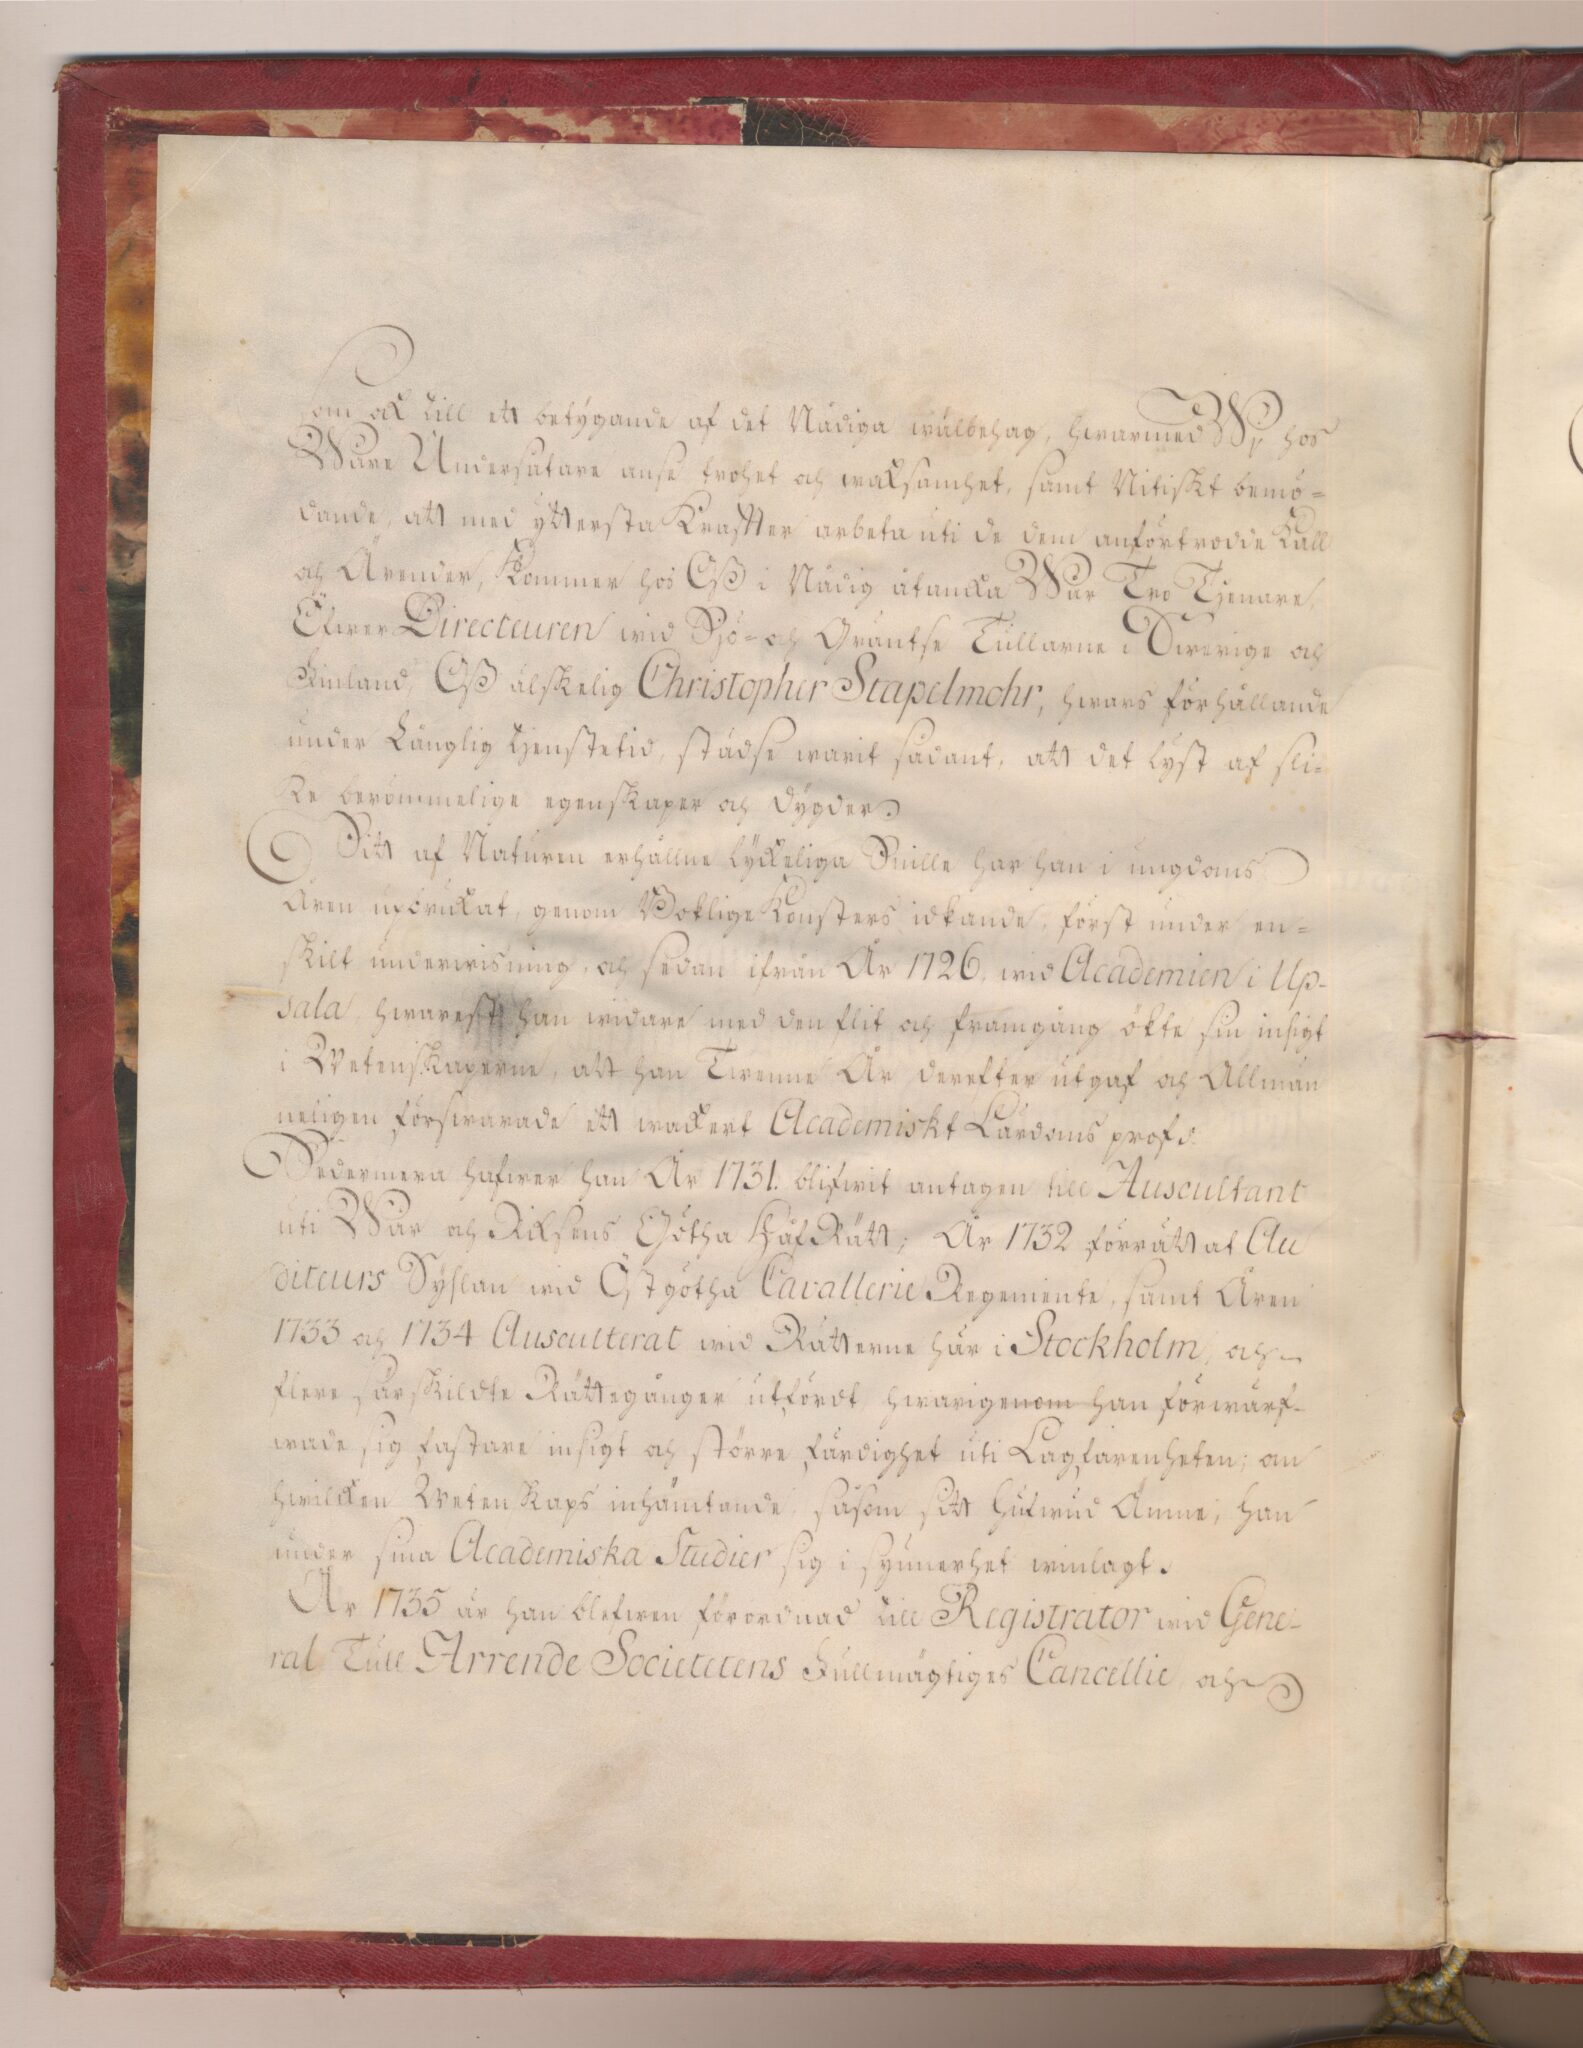 Som ock till ett betygande af det Nådiga wälbehag, hwarmed Wj hos
Wåre Undersåtare anse trohet och waksamhet, samt Nitiskt bemö-
dande, att med yttersta Krafter arbeta uti de dem anförtrodde Kall
och Ärender, Kommer hos Oß i Nådig åtancka Wår Tro Tjenare,
Öfwer Directeuren wid Sjö- och Gräntse Tullarne i Swerige och
Finland, Oß älskelig Christopher Stapelmohr, hwars förhållande
under Långlig tjenstetid, städse warit sådant, att det lyst af sli-
ke berömmelige egenskaper och dygder.
Sitt af Naturen erhållne lyckeliga Snille har han i ungdoms
Åren updrukat, genom Boklige Konsters idkande, först under en-
skilt underwisning, och sedan ifrån År 1726, wid Academien i Up-
sala, hwarest han widare med den flit och framgång ökte sin insigt
i Wetenskaperne, att han Twenne År derefter utgaf och Allmän
neligen förswarade ett wackert Academiskt Lärdoms prof.
Sedermera hafwer han År 1731. blifwit antagen till Auscultant
uti Wår och Riksens Götha HåfRätt; År 1732 förrättat Au
diteurs Syslan wid Östgötha Cavallerie Regemente, samt Åren
1733 och 1734 Ausculterat wid Rätterne här i Stockholm, och
flere särskildte Rättegånger utfördt, hwarigenom han förwärf-
wade sig fastare insigt och större färdighet uti Lagfarenheten; om
hwilcken Wetenskaps inhämtande, såsom sitt hufwud Ämne, han
under sina Academiska Studier sig i synnerhet winlagt.
År 1735 är han blefwen förordnad till Registrator wid Gene-
ral Tull Arrende Societetens Fullmägtiges Cancellie, och